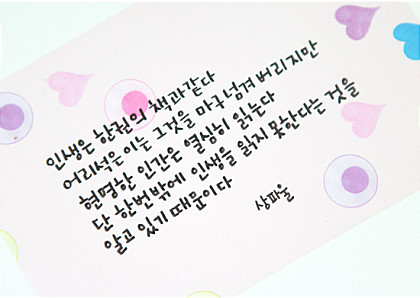 인생은 한권의 책과같다
어리석은 이는 그것을 마구 넘겨 버리지만
현명한 인간은 열심히 읽는다
단 한번밖에 인생을 읽지 못한다는 것을
알고 있기 때문이다
상파울